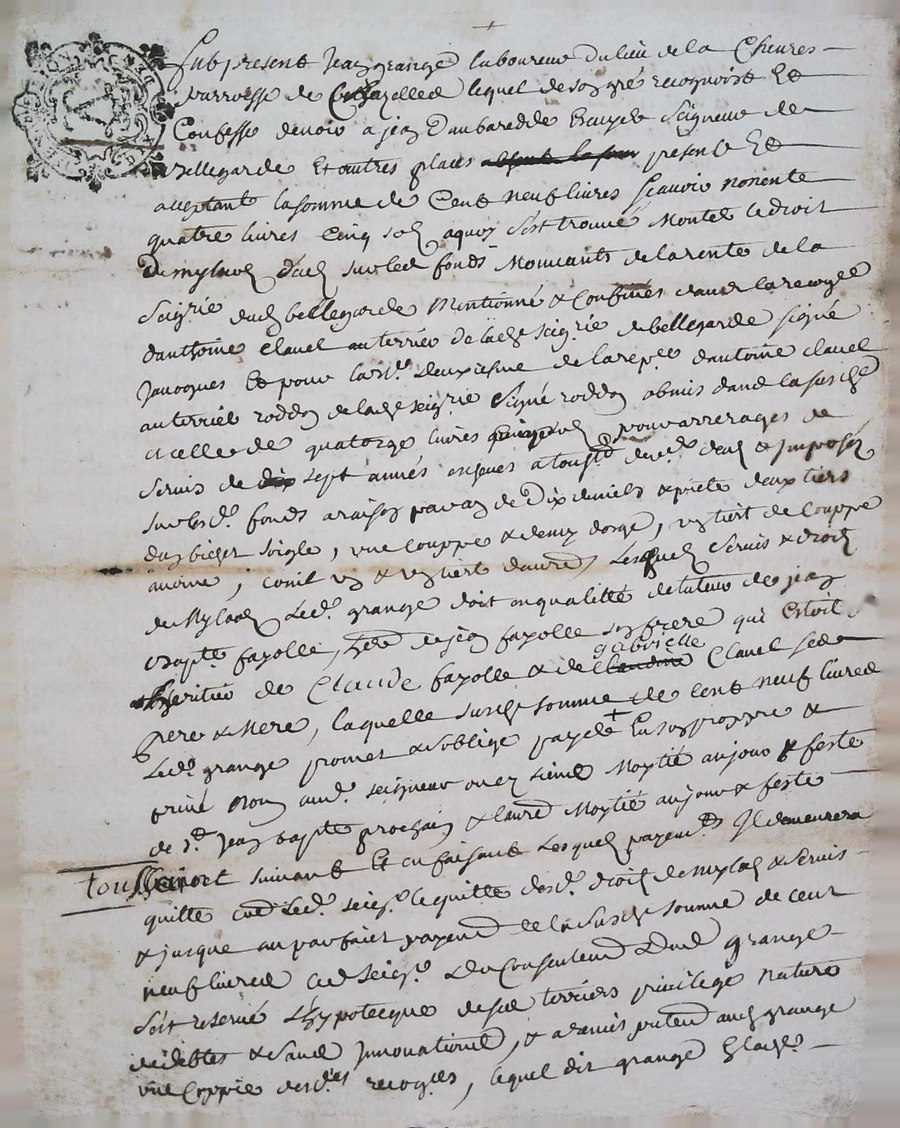 Fut present Jean grange laboureur du lieu de la Cheures
parroesse de Chazelles lequel de son gré recognoist Et
Confesse devoir a jean Daubaredde Escuyer Seigneur de
Bellegarde Et autres places absent le sieur present Et
acceptant la somme de Cent neuf liures scauoir nonente
quatre liures Cinq sols a quoy s'est trouué Monter le droit
de mylaods d'acs sur les fonds Mouuants de la rente de la
Seigrie dud bellegarde Mentionné & Confinés dans la recogce
danthoine clauel au terrier de lade seigrie de bellegarde signé
Jauoques Et pour la sde deuxiesme de la repce dantoine clauel
au terrier roddon de lade seigrie Signé roddon obmis dans la susde
et celle de quatorze liures pour arrerages de
seruis de dix sept années Imposés
sur lesds fonds a raison par an de Dix deniers & picte deux tiers
dun bichet soigle, une Couppe & demy dorge, un tiert de Couppe
auoine, conil un & un tiert Lesquels Seruis & droits
de Mylaods Led. grange doit en qualitté de tuteur de jean
bapte fayolle, de jean fayolle son frere qui Estoit
heritier de Claude fayolle & de claudine gabrielle Clauel ses
Pere & Mere, laquelle susde somme de Cent neuf liures
Led. grange promet & s'oblige payer + En son proppre &
priué Nom aud. seigneur ouez siens Moytié au jour & feste
de st. Jean bapte prochain & lautre Moytié au jour & feste
toussainct suiuant Et en faisant Lesquels payements Il demeurera
quitte Led. seigr. le quitte desd. droits de mylaods & seruis
& jusque au parfait payemt de la susde somme de cent
neuf liures Led seigr. Du Consentemt Dud grange
s'est reserué L'hypotecque de ses terriers priuilege nature
de debtes & sans Innovations, & a remis aud grange
une Coppie desdes recogces, lequel dit grange